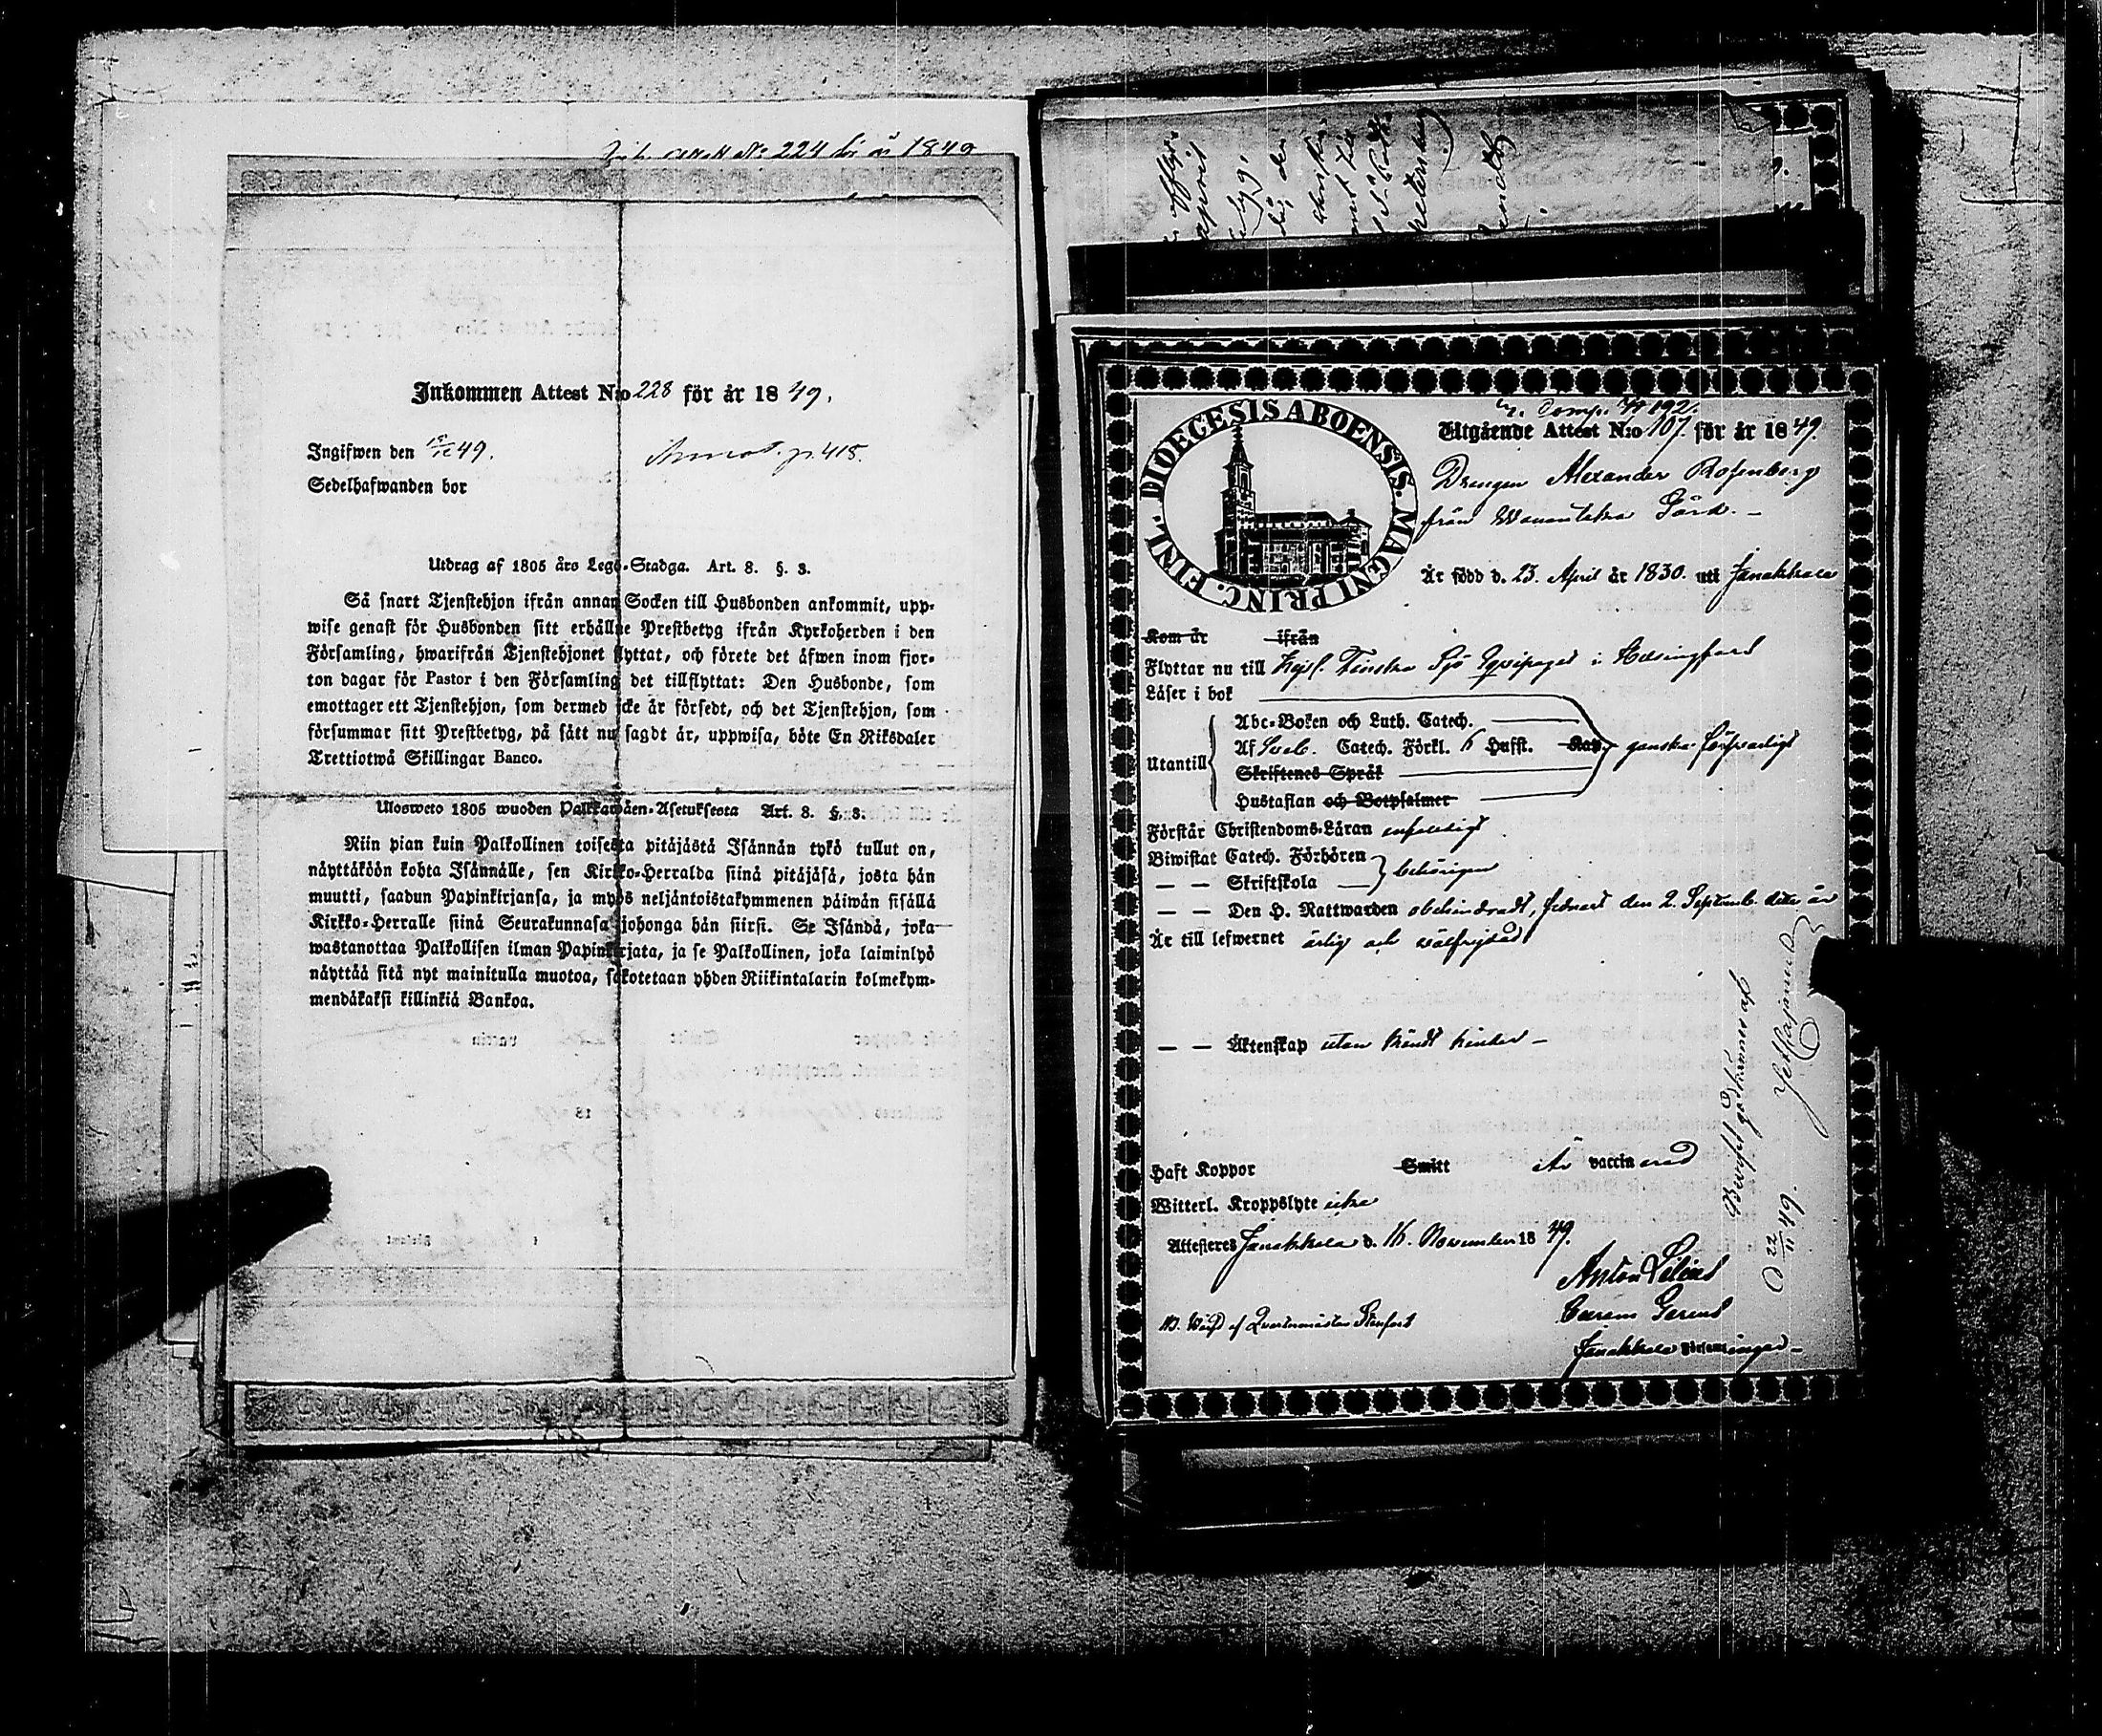 Inkommen Attest N:o 228 för år 1849.
Ingifwen den 19/12 49. p. 418.
Sedelhafwanden bor
Utdrag af 1805 års Lego-Stadga. Art. 8. §. 3.
Så snart Tjenstehjon ifrån annan Socken till Husbonden ankommit, upp-
wise genast för Husbonden sitt erhållne Prestbetyg ifrån Kyrkoherden i den
Församling, hwarifrån Tjenstehjonet flyttat, och förete det äfwen inom fjor-
ton dagar för Pastor i den Församling det tillflyttat: Den Husbonde, som
emottager ett Tjenstehjon, som dermed icke är försedt, och det Tjenstehjon, som
försummar sitt Prestbetyg, på sätt nu sagdt är, uppwisa, böte En Riksdaler
Trettiotwå Skillingar Banco.
Ulosweto 1805 wuoden Palkkawäen-Asetuksesta Art. 8. §. 3.
Niin pian kuin Palkollinen toisesta pitäjästä Isännän tykö tullut on,
näyttäköön kohta Isännälle, sen Kirkko-Herralda siinä pitäjäsä, josta hän
muutti, saadun Papinkirjansa, ja myös neljäntoistakymmenen päiwän sisällä
Kirkko-Herralle siinä Seurakunnasa johonga hän siirsi. Se Isändä, joka
wastanottaa Palkollisen ilman Papinkirjata, ja se Palkollinen, joka laiminlyö
näyttää sitä nyt mainitulla muotoa, sakotetaan yhden Riikintalarin kolmekym-
mendäkaksi killinkiä Bankoa.
DIOECESIS ABOENSIS. MAGNI PRINC. FINL.
Utgående Attest N:o 107. för år 1849.
Drengen Alexander Rosenberg
från Gård. -
Är född d. 23. April år 1830. uti Janakkala
Kom år ifrån
Flyttar nu till Kejs. Finska Sjö Eqvipaget i Helsingfors
Läser i bok
Abc-Boken och Luth. Catech.
Utantill Af Sveb. Catech. Förkl. 6 Hufst. Kap. ganska försvarligt
Skriftenes Språk
Hustaflan och Botpsalmer
Förstår Christendoms-Läran enfaldigt
Biwistat Catech. Förhören
— — Skriftskola behörigen
— — Den H. Nattwarden obehindradt, sednast den 2. Septemb. detta år
Är till lefwernet ärlig och välfrejdad
— — Äktenskap utan kändt hinder -
Haft Koppor Smitt Är vaccinerad
Witterl. Kroppslyte icke
Attesteras Janakkala d. 16. November 1849.
Anton Lilius
Janakkala Församlingar -
Bevist godkännes af
22/11 49.